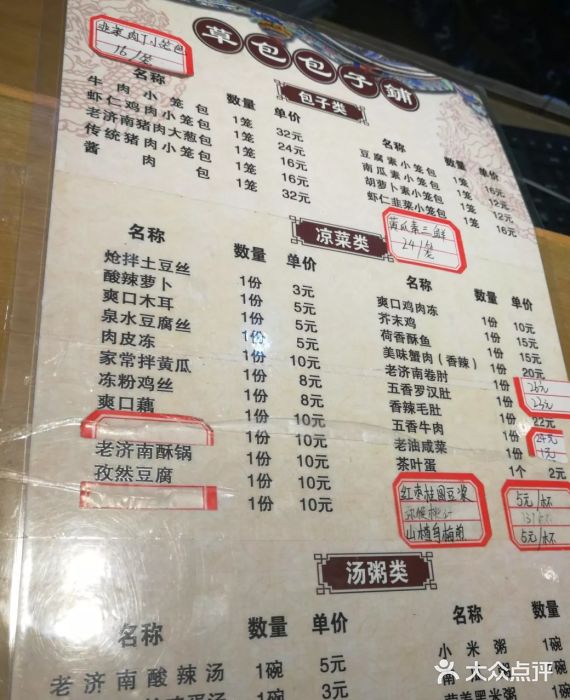 韭菜肉丁小笼包
16/笼
草包包子铺
包子类
名称 数量 单价
牛肉小笼包 1笼 32元
虾仁鸡肉小笼包 1笼 24元
老济南猪肉大葱包 1笼 16元
传统猪肉小笼包 1笼 16元
酱肉包 1笼 32元
名称 数量 单价
豆腐素小笼包 1笼 16元
南瓜素小笼包 1笼 12元
胡萝卜素小笼包 1笼 12元
虾仁韭菜小笼包 1笼 16元
黄瓜素三鲜
24/笼
凉菜类
名称 数量 单价
炝拌土豆丝 1份 3元
酸辣萝卜 1份 5元
爽口木耳 1份 5元
泉水豆腐丝 1份 5元
肉皮冻 1份 10元
家常拌黄瓜 1份 8元
冻粉鸡丝 1份 8元
爽口藕 1份 10元
1份 10元
老济南酥锅 1份 10元
孜然豆腐 1份 10元
1份 10元
名称 数量 单价
爽口鸡肉冻 1份 10元
芥末鸡 1份 15元
荷香酥鱼 1份 15元
美味蟹肉（香辣） 1份 20元
老济南卷肘 1份
五香罗汉肚 1份 23元
香辣毛肚 1份 22元
五香牛肉 1份 24元
老油咸菜 1份 1元
茶叶蛋 1个 2元
红枣桂圆豆浆 5元/杯
山楂乌梅煎 5元/杯
汤粥类
名称 数量 单价
老济南酸辣汤 1碗 5元
1碗 3元
名称 数量 单价
小米粥 1碗
南瓜粥 1碗
黑米粥
大众点评